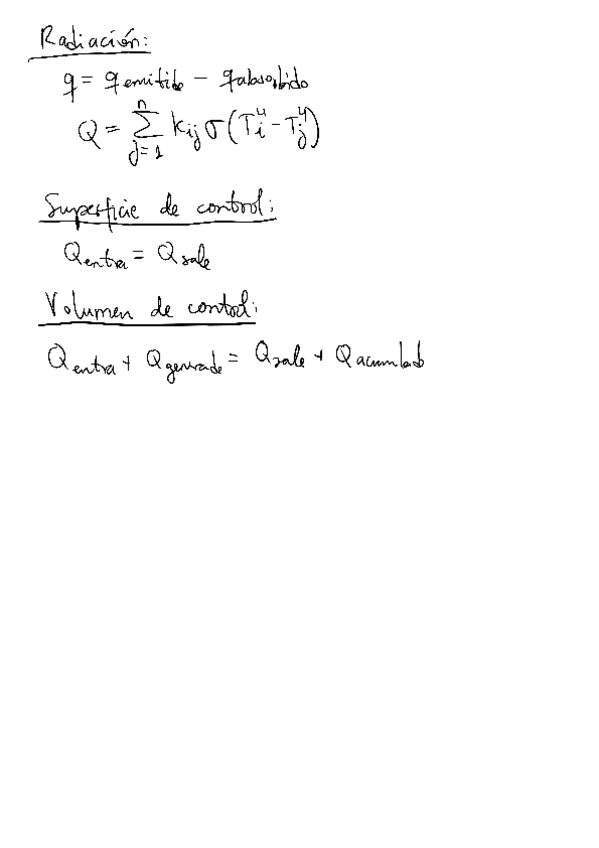 Radiación:
q = q emitido - q absorbido
Q = Σ_{j=1}^{n} Kij σ (Ti⁴ - Tj⁴)
Superficie de control:
Q entra = Q sale
Volumen de control:
Q entra + Q generado = Q sale + Q acumulado